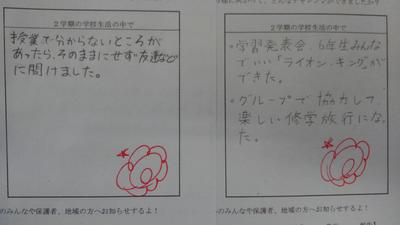 2学期の学校生活の中で
授業で分からないところが
あったら、そのままにせず友達などに聞けました。
のみんなや保護者、地域の方へお知らせするよ！
2学期の学校生活の中で
・学習発表会、6年生みんな
でいい「ライオン・キング」が
できた。
・グループで協力して、
楽しい修学旅行になっ
た。
のみんなや保護者、地域の方へお知らせするよ！